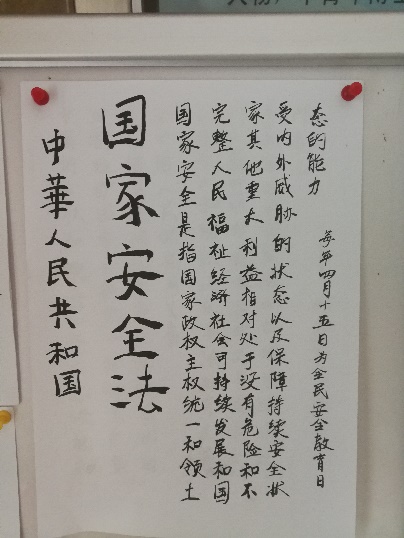 中華人民共和国
国家安全法
国家安全是指国家政权主权统一和领土
完整人民福祉经济社会可持续发展和国
家其他重大利益指对处于没有危险和不
受内外威胁的状态以及保障持续安全状
态的能力
每年四月十五日为全民安全教育日